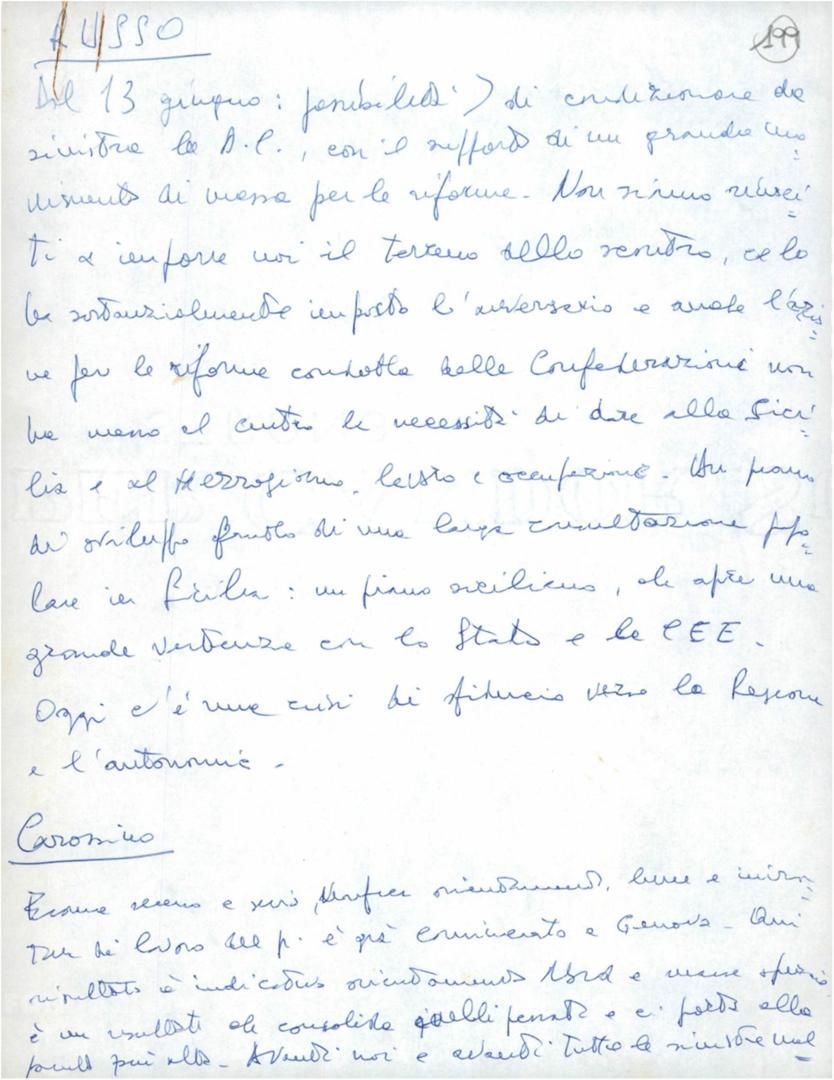 RUSSO
199
Dal 13 giugno: possibilità di condizionare da
sinistra la D.C., con il supporto di un grande mo=
vimento di massa per le riforme. Non siamo riusci=
ti a imporre noi il terreno dello scontro, ce lo
ha sostanzialmente imposto l'avversario e anche l'azio=
ne per le riforme condotta dalle Confederazioni non
ha messo al centro la necessità di dare alla Sici=
lia e al Mezzogiorno lavoro e occupazione. Un piano
di sviluppo frutto di una larga consultazione popo=
lare in Sicilia: un piano siciliano, che apre una
grande vertenza con lo Stato e la CEE.
Oggi c'è una crisi di fiducia verso la Regione
e l'autonomia.
Carossino
Esame sereno e serio, verifica orientamenti, linee e
di lavoro del p. è già cominciato a Genova.
risultato è indicativo orientamento Nord e
è un risultato che consolida quelli passati e ci porta alla
più alta. Avanti noi e avanti tutta la sinistra nel